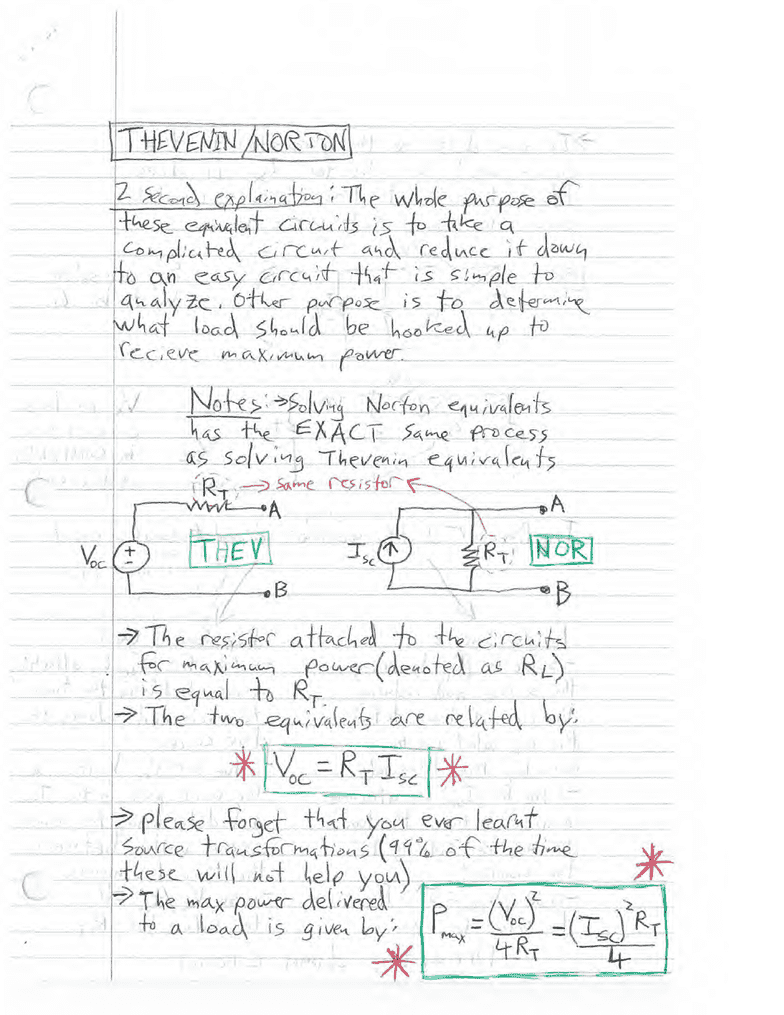 THEVENIN/NORTON
2 second explaination: The whole purpose of
these equivalent circuits is to take a
complicated circuit and reduce it down
to an easy circuit that is simple to
analyze. Other purpose is to determine
what load should be hooked up to
recieve maximum power.
Notes: → Solving Norton equivalents
has the EXACT same process
as solving Thevenin equivalents
R_T → same resistor ←
A
A
V_oc + - THEV
I_sc ↑ R_T NOR
B
B
→ The resistor attached to the circuits
for maximum power (denoted as R_L)
is equal to R_T.
→ The two equivalents are related by:
* V_oc = R_T I_sc *
→ please forget that you ever learnt
source transformations (99% of the time
these will not help you)
→ The max power delivered
to a load is given by:
* P_max = (V_oc)^2 / 4R_T = (I_sc)^2 R_T / 4 *